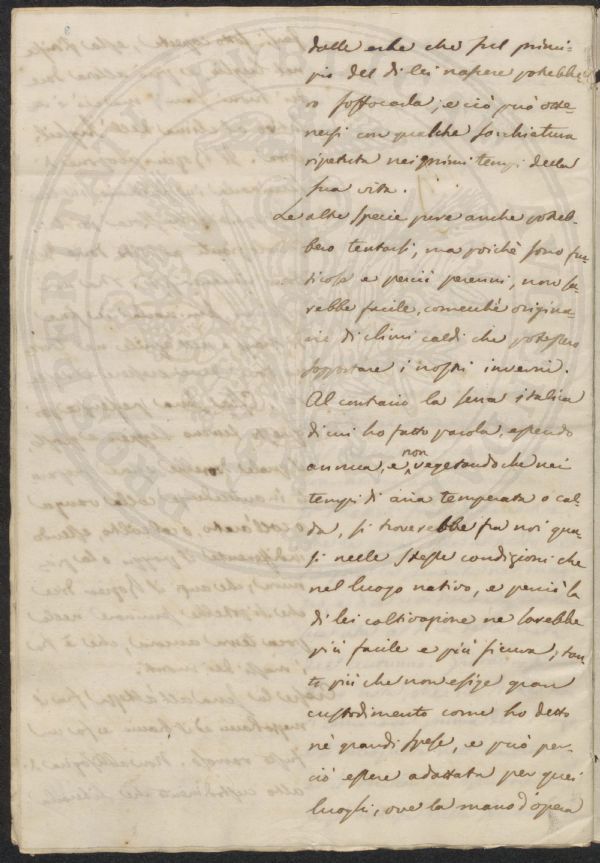 dalle erbe che sul princi-
pio del di lei nascere potrebbe-
ro soffocarla; e ciò può otte-
nersi con qualche sarchiatura
ripetuta nei primi tempi della
sua vita.
Le altre specie pure anche potreb-
bero tentarsi, ma poichè sono fru-
ticose e perciò perenni, non sa-
rebbe facile, comecchè origina-
rie di climi caldi che potessero
sopportare i nostri inverni.
Al contrario la sena italica
di cui ho fatto parola, essendo
annua, e non vegetando che nei
tempi di aria temperata o cal-
da, si troverebbe fra noi qua-
si nelle stesse condizioni che
nel luogo nativo, e perciò la
di lei coltivazione ne sarebbe
più facile e più sicura; tan-
to più che non esige gran
custodimento come ho detto
nè grandi spese, e può per-
ciò essere adattata per quei
luoghi, ove la mano d'opera